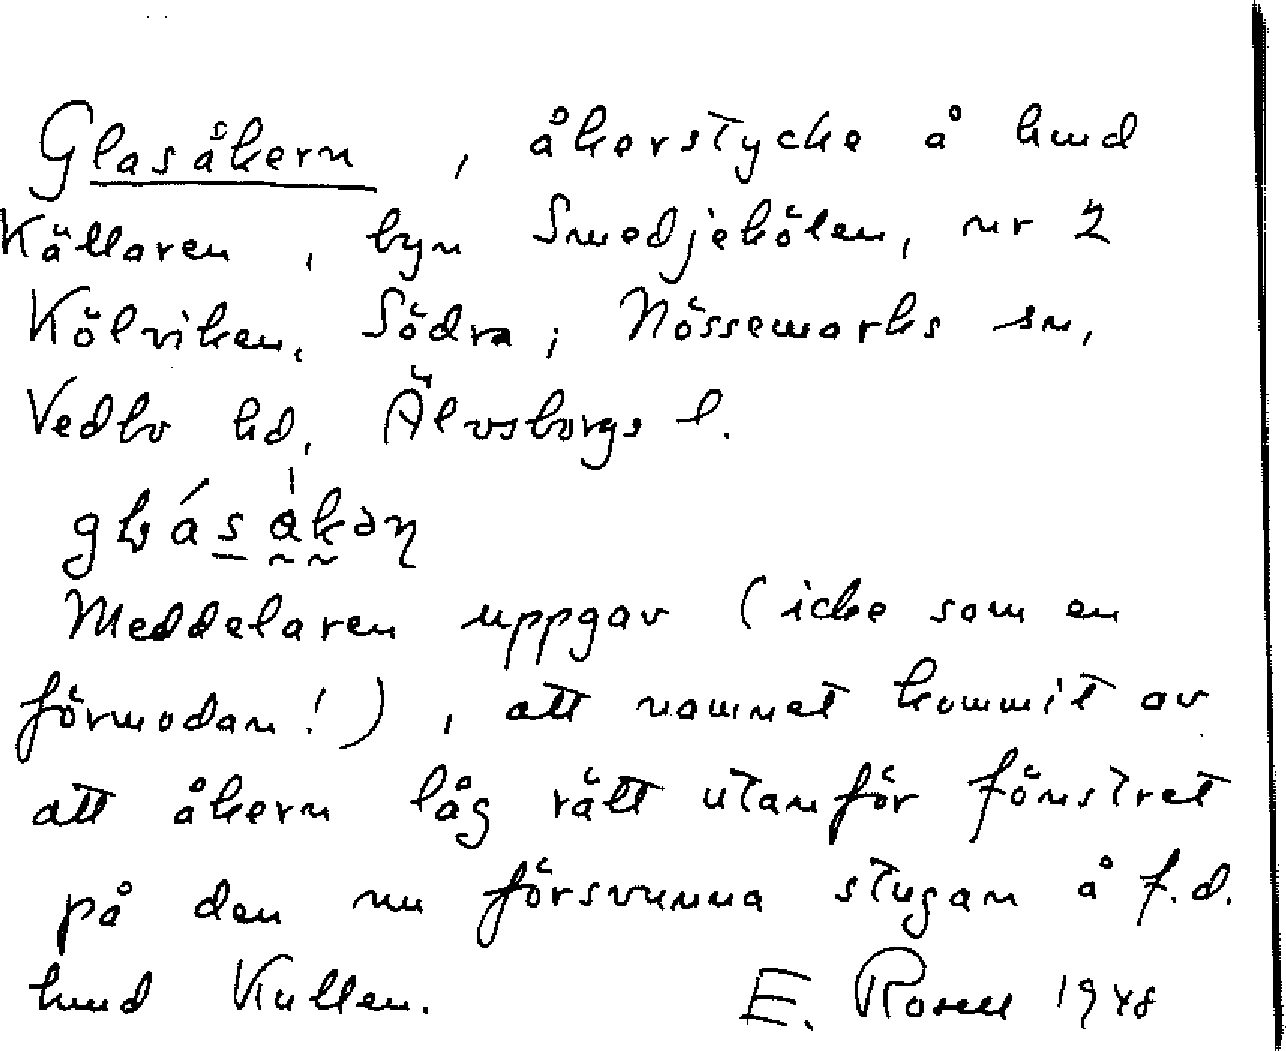 Glasåkern, åkerstycke å hmd
Källaren, byn Smedjekölen, nr 2
Kölviken, Södra; Nössemarks sn,
Vedbo hd, Älvsborgs l.
Meddelaren uppgav (icke som en
förmodan!), att namnet kommit av
att åkern låg rätt utanför fönstret
på den nu försvunna stugan å f.d.
hmd Kullen. E. Rosell 1948